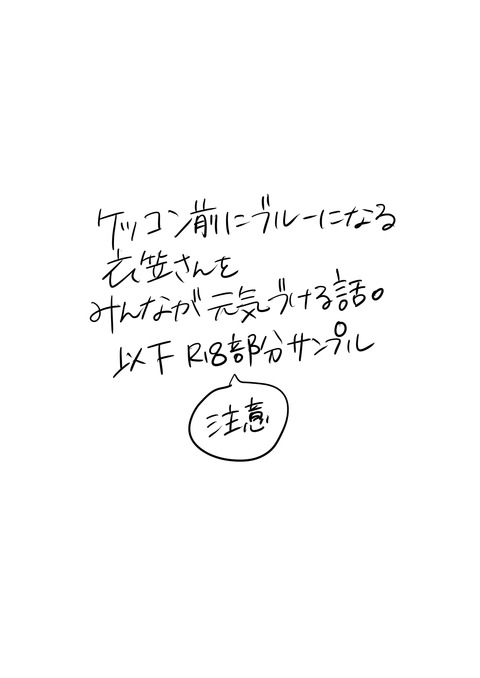 ケッコン前にブルーになる
衣笠さんを
みんなが元気づける話。
以下 R18部分サンプル
注意